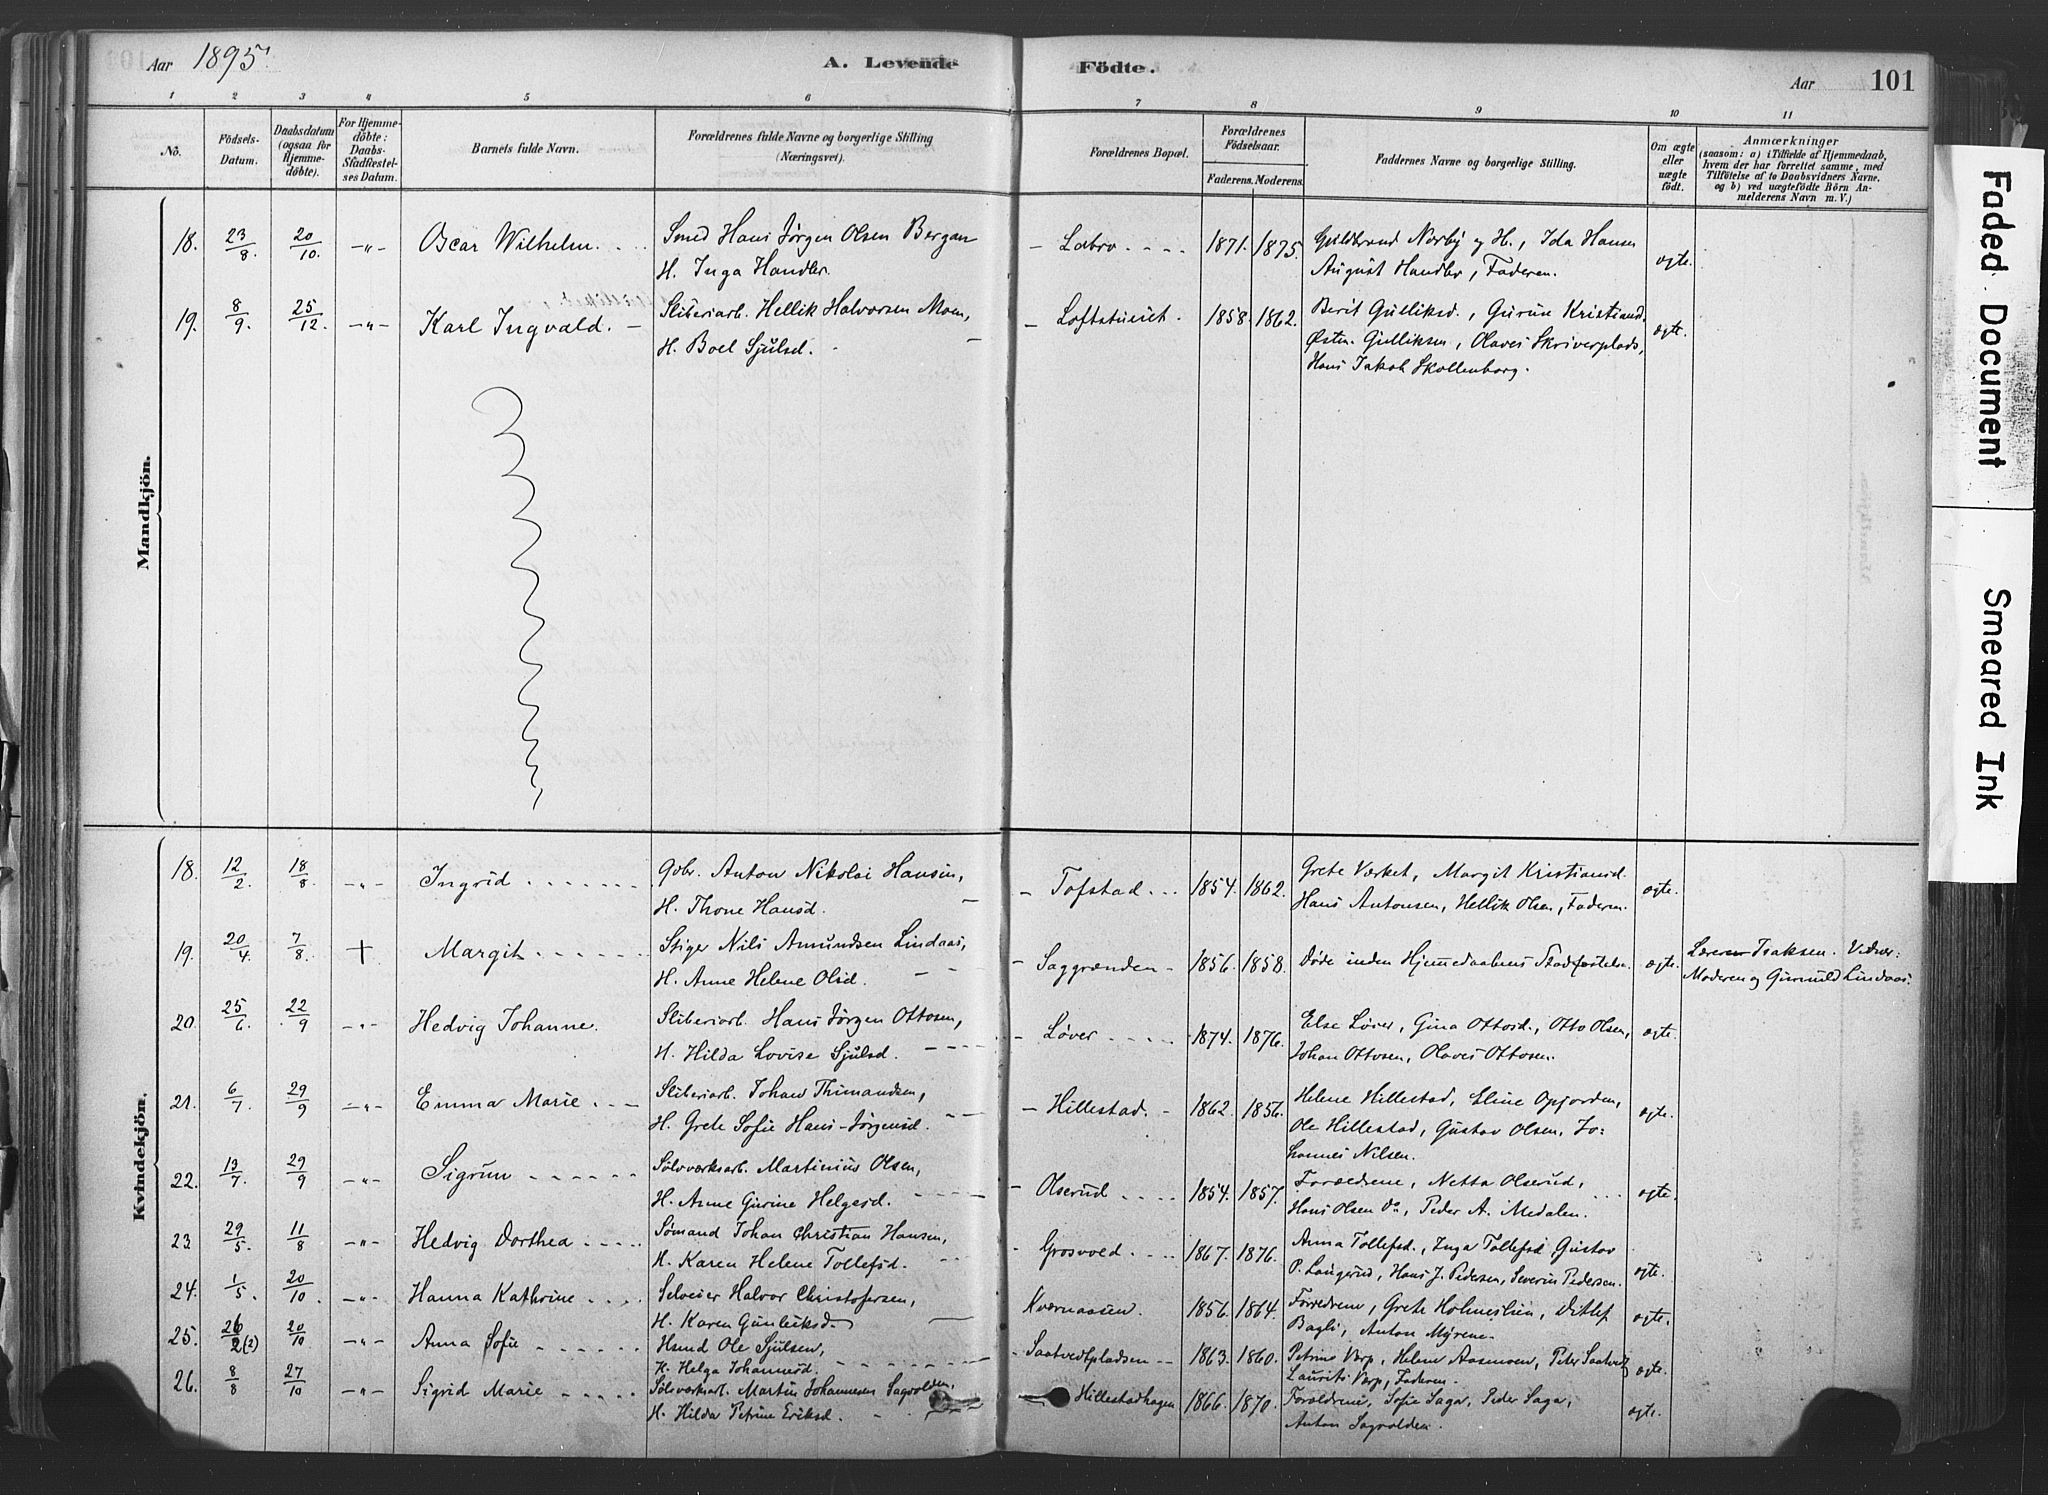 Aar 1895.
A. Levende Födte.
Aar 101
1 2 3 4 5 6 7 8 9 10 11
No.
Födsels-Datum.
Daabsdatum (ogsaa for Hjemmedöbte).
For Hjemmedöbte: Daabs-Stadfæstelses Datum.
Barnets fulde Navn.
Forældrenes fulde Navne og borgerlige Stilling (Næringsvei).
Forældrenes Bopæl.
Forældrenes Födselsaar.
Faderens. Moderens.
Faddernes Navne og borgerlige Stilling.
Om ægte eller uægte födt.
Anmærkninger
(saasom: a) i Tilfælde af Hjemmedaab, hvem der har forrettet samme, med Tilföielse af to Daabsvidners Navne, og b) ved uægtefödte Börn Anmelderens Navn m. V.)
Mandkjön.
18. 23/8. 20/10. —"— Oscar Wilhelm. Smed Hans Jørgen Olsen Bergan
H. Inga Handler. — Labro 1871. 1875. Guldbrand Norby og H., Ida Hansen
August Handler, Faderen. ægte.
19. 8/9. 25/12. —"— Karl Ingvald. — Sliberiarb. Hellik Halvorsen Moen,
H. Boel Sjulsd. — Loftstueiet. 1858. 1862. Berit Gulliksd., Gurine Kristiansd.
Østen Gulliksen, Olaves Skriverplads,
Hans Jakob Skollenborg. ægte.
Kvindekjön.
18. 12/2. 18/8. —"— Ingrid Gbr. Anton Nikolai Hansen,
H. Thone Hansd. — Tofstad 1854. 1862. Grete Værket, Margit Kristiansd.
Hans Antonsen, Hellik Olsen, Faderen. ægte.
19. 20/4. 7/8. + Margit Stiger Nils Amundsen Lindaas,
H. Anne Helene Olsd. — Saggrænden — 1856. 1858. Døde inden Hjemmedaabens Stadfæstelse. ægte. Læreren Isaksen. Vidner:
Moderen og Gunnuld Lindaas.
20. 25/6. 22/9. —"— Hedvig Johanne. Sliberiarb. Hans Jørgen Ottosen,
H. Hilda Lovise Sjulsd. — Løver 1874. 1876. Else Løver, Gina Ottosd., Otto Olsen,
Johan Ottosen, Olaves Ottosen. ægte.
21. 6/7. 29/9 —"— Emma Marie. Sliberiarb. Johan Thimandsen,
H. Grete Sofie Hans-Jørgensd. — Hillestad. — 1862. 1856. Helene Hillestad, Eline Opjorden,
Ole Hillestad, Gustav Olsen, Jo-
hannes Nilsen. ægte.
22. 13/7. 29/9 —"— Sigrun Sølvværksarb. Martinius Olsen,
H. Anne Gurine Helgesd. — Olserud 1854. 1857. Forældrene, Netta Olserud,
Hans Olsen do, Peder A. Medalen. ægte.
23. 29/5. 11/8 —"— Hedvig Dorthea Sømand Johan Christian Hansen,
H. Karen Helene Tollefsd. - Grosvold. 1867. 1876. Anna Tollefsd., Inga Tollefsd. Gustav
P. Langerud, Hans J. Pedersen, Severin Pedersen. ægte.
24. 1/5. 20/10. —"— Hanna Kathrine Selveier Halvor Christofersen,
H. Karen Gunleiksd. — Kvernaasen. 1856. 1864. Forældrene, Grete Holmeslien, Ditlef
Bagli, Anton Myrene. ægte.
25. 26/2 (2) 20/10 —"— Anna Sofie Husmd Ole Sjulsen,
H. Helga Johannesd. Saatvedtpladsen — 1863. 1860. Petrine Værp, Helene Aasmoen, Peter Saatvedt,
Laurits Værp, Faderen. ægte.
26. 8/8 27/10 —"— Sigrid Marie Sølvværksarb. Martin Johannesen Sagvolden,
H. Hilda Petrine Eriksd. — Hillestadhagen 1866. 1870. Forældrene, Sofie Saga, Peder Saga,
Anton Sagvolden. ægte.
Faded Document
Smeared Ink